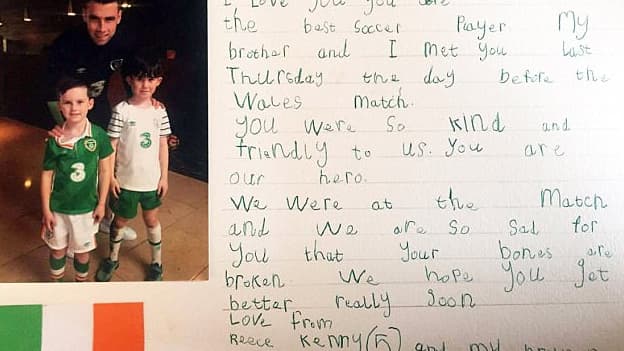 I Love you you are
the best soccer Prayer My
brother and I met you last
Thursday the day before the
Wales match.
you were so kind and
friendly to us. you are
our hero.
We were at the match
and we are so sad for
you that your bones are
broken We hope you get
better really soon
Love from
Reece Kenny (5) and my
3
3